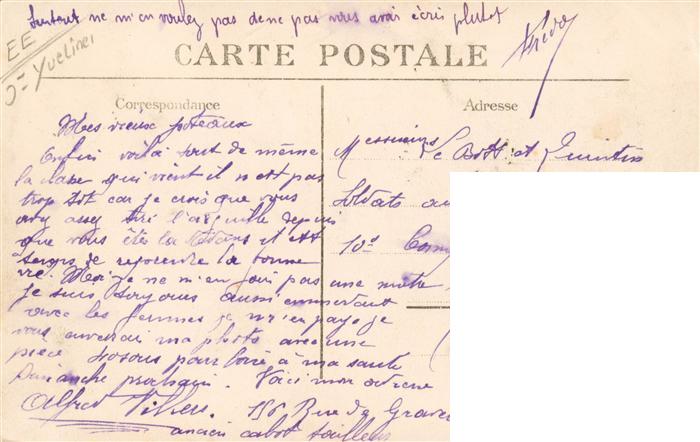 Surtout ne m'en voulez pas de ne pas vous avoir écris plutot
EE
Yvelines
CARTE POSTALE
Correspondance
Adresse
Mes vieux poteaux
Enfin voilà tout de même
la classe qui vient il n est pas
trop tot car je crois que vous
avez assez tiré l'aiguille depuis
que vous êtes la dedans il est
temps de reprendre la bonne
vie. Moi je ne m'en fais pas une miette
je suis toujours aussi
avec les femmes je m'en paye je
vous enverrai ma photo avec une
pièce 40 sous pour boire à ma santé
Dimanche prochain. Voici mon adresse
Alfred 156 Rue de
ancien cabot tailleur
Messieurs Le et Quintin
Soldats au
10e